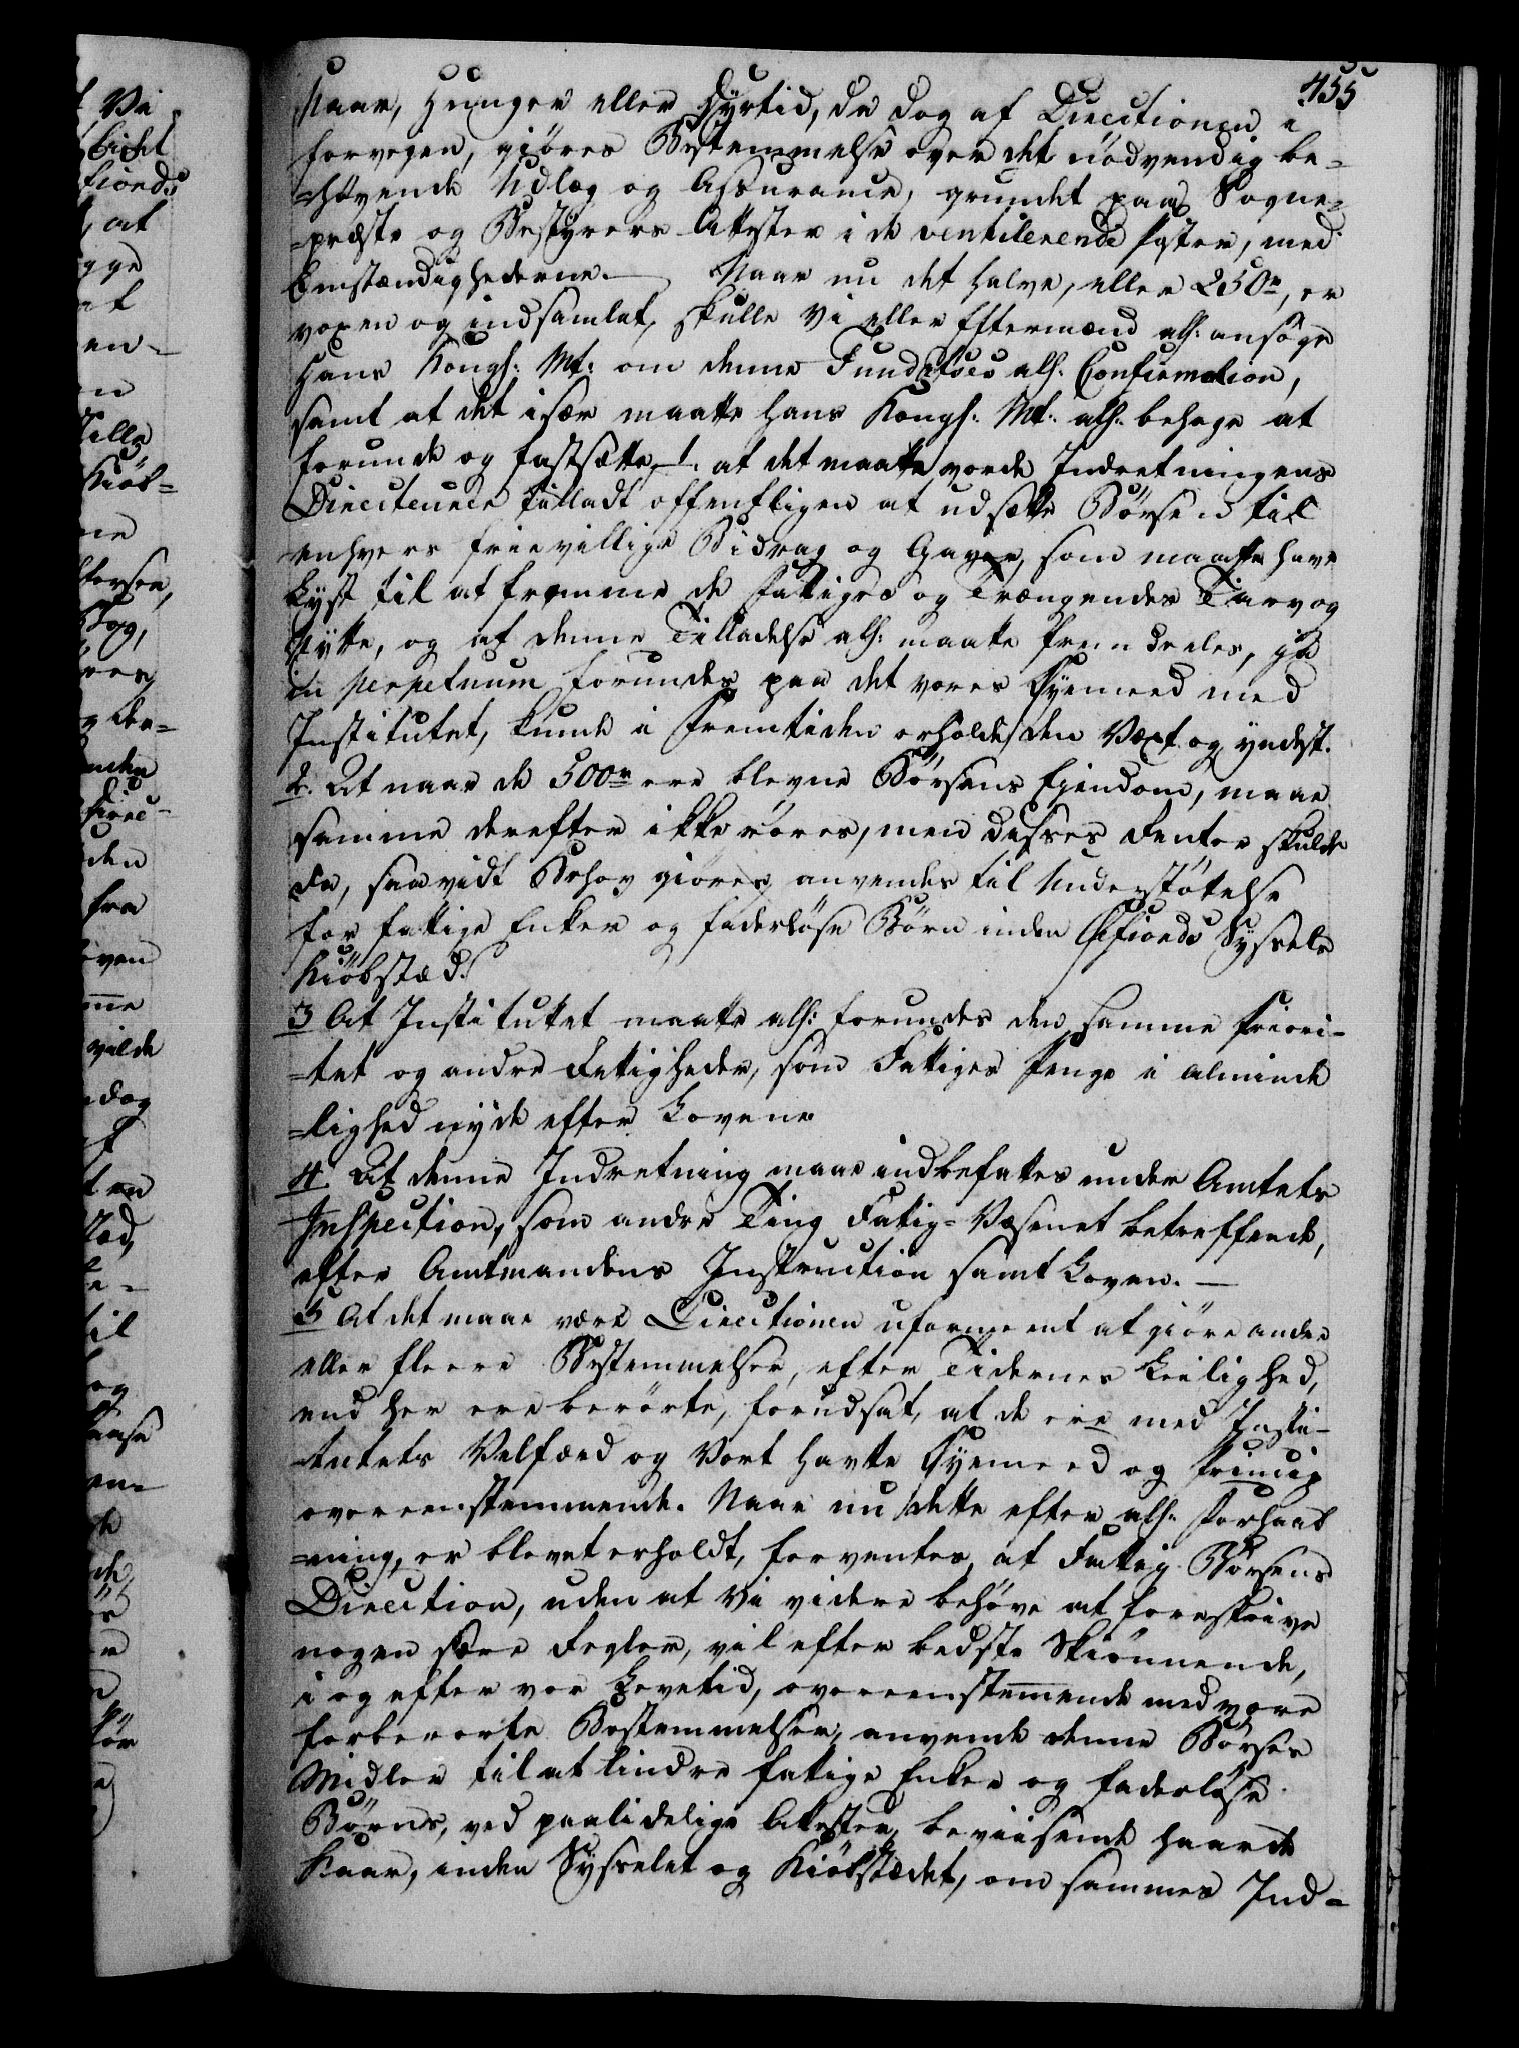 455
Kaar, Hunger eller Dyrtid, da dog af Directionen i
forvegen, giøres Bestemmelse over det nödvendig be-
-hövende Udlæg og Assurance, grundet paa Sogne-
-præste og Bestyrers Attester i de ventilerende Poster, med
Omstændighederne. — Naar nu det halve, eller 250r, er
voxen og indsamlet, skulle Vi eller Eftermænd alh: ansöge
Hans Kongl: Mt: om denne Fundatses alh: Confirmation,
samt at det især maatte Hans Kongl: Mt: alh: behage at
forunde og fastsætte, 1. at det maatte vorde Indretningens
Directeurer tilladt offentligen at udsætte Börsen til
enhvers frievillige Bidrag og Gaver, som maatte have
Lyst til at fremme de Fatiges og Trængendes Tarv og
Nytte, og at denne Tilladelse alh: maatte fremdeeles, ja
in perpetuum forundes paa det vores Øyemeed med
Institutet, kunde i Fremtiden erholde den Vext og yndest.
2. At naar de 500r ere blevne Börsens Eiendom, maae
samme derefter ikke röres, men disses Renter skulde
da, saavidt Behov giöres, anvendes til Understötelse
for fattige Enker og faderlöse Börn inden Øefiords Syssels
Kiöbstæd.
3 At Institutet maatte alh: forundes den samme Priori-
-tet og andre Retigheder, som Fattiges Penge i alminde
-lighed nyde efter Lovene
4. At denne Indretning maae indbefattes under Amtets
Inspection, som andre Ting Fattig-Væsenet betreffende,
efter Amtmandens Instruction samt Loven. —
5 At det maae være Directionen uformeent at giöre andre
eller fleere Bestemmelser, efter Tidernes Leilighed,
end her ere berörte, forudsat, at de ere med Insti-
-tutets Velfærd og Vort havte Øyemeed og Princip
overeenstemmende. Naar nu dette efter alh: Forhaab
-ning, er blevet erholdt, forventes, at Fattig Börsens
Direction, uden at Vi videre behöve at foreskrive
nogen sære Regler, vil efter bedste Skiönnende,
i og efter vor Levetid, overeenstemmende med vore
forberörte Bestemmelser, anvende denne Börses
Midler til at lindre fattige Enker og faderlöse
Börns, ved paalidelige Attester, beviisende haarde
Kaar, inden Sysselet og Kiöbstædet, om sammes Ind-